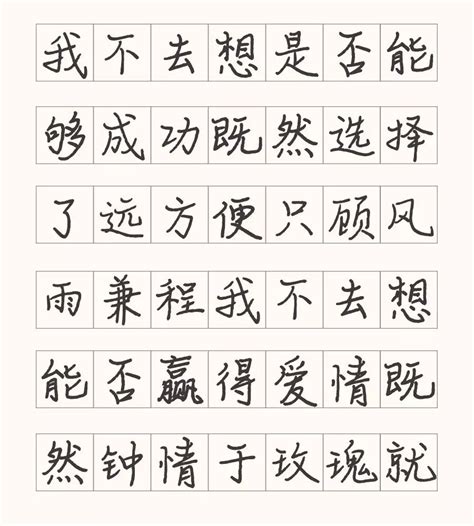 我不去想是否能
够成功既然选择
了远方便只顾风
雨兼程我不去想
能否赢得爱情既
然钟情于玫瑰就